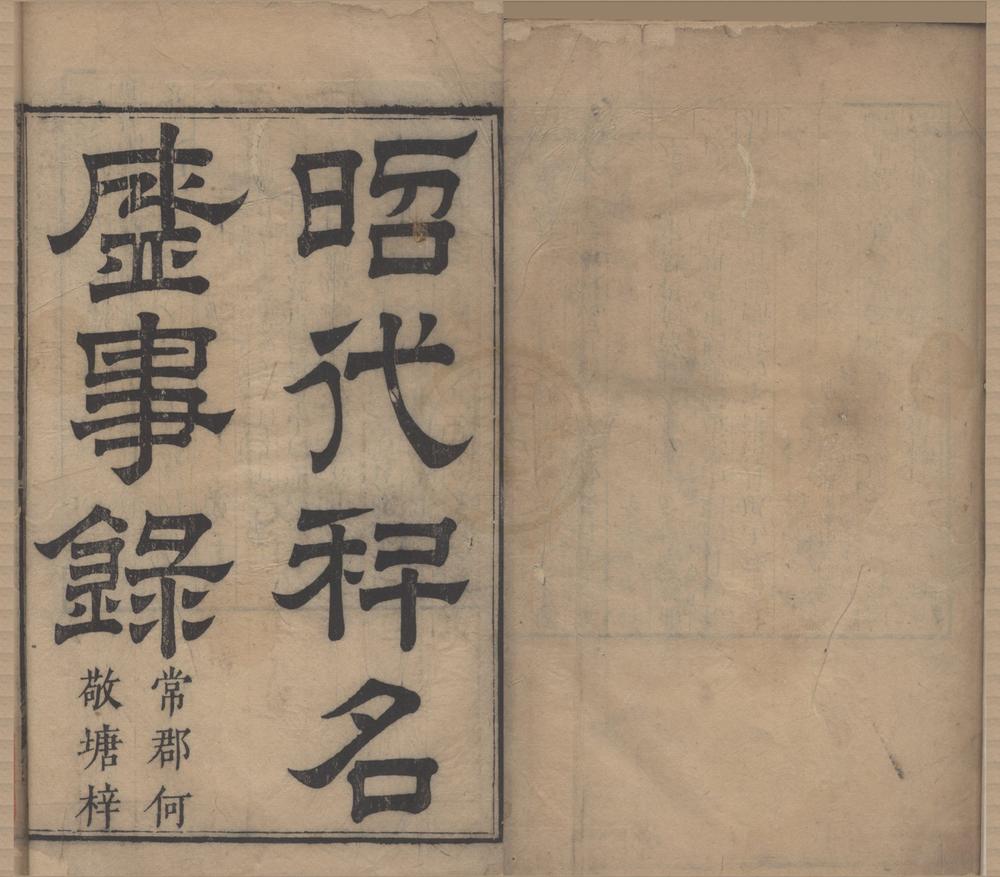 昭代科名
盛事錄
常郡何
敬塘梓